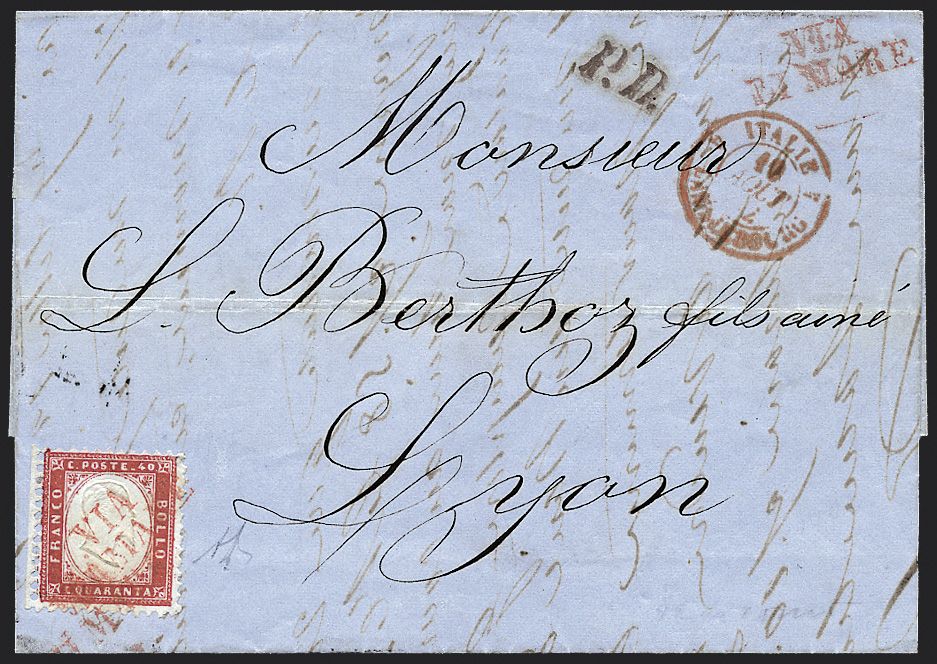 VIA
DI MARE
P.D.
ITALIE
10
AOUT
Monsieur
L. Berthoz fils ainé
Lyon
C. POSTE. 40
FRANCO
BOLLO
C. QUARANTA
VIA